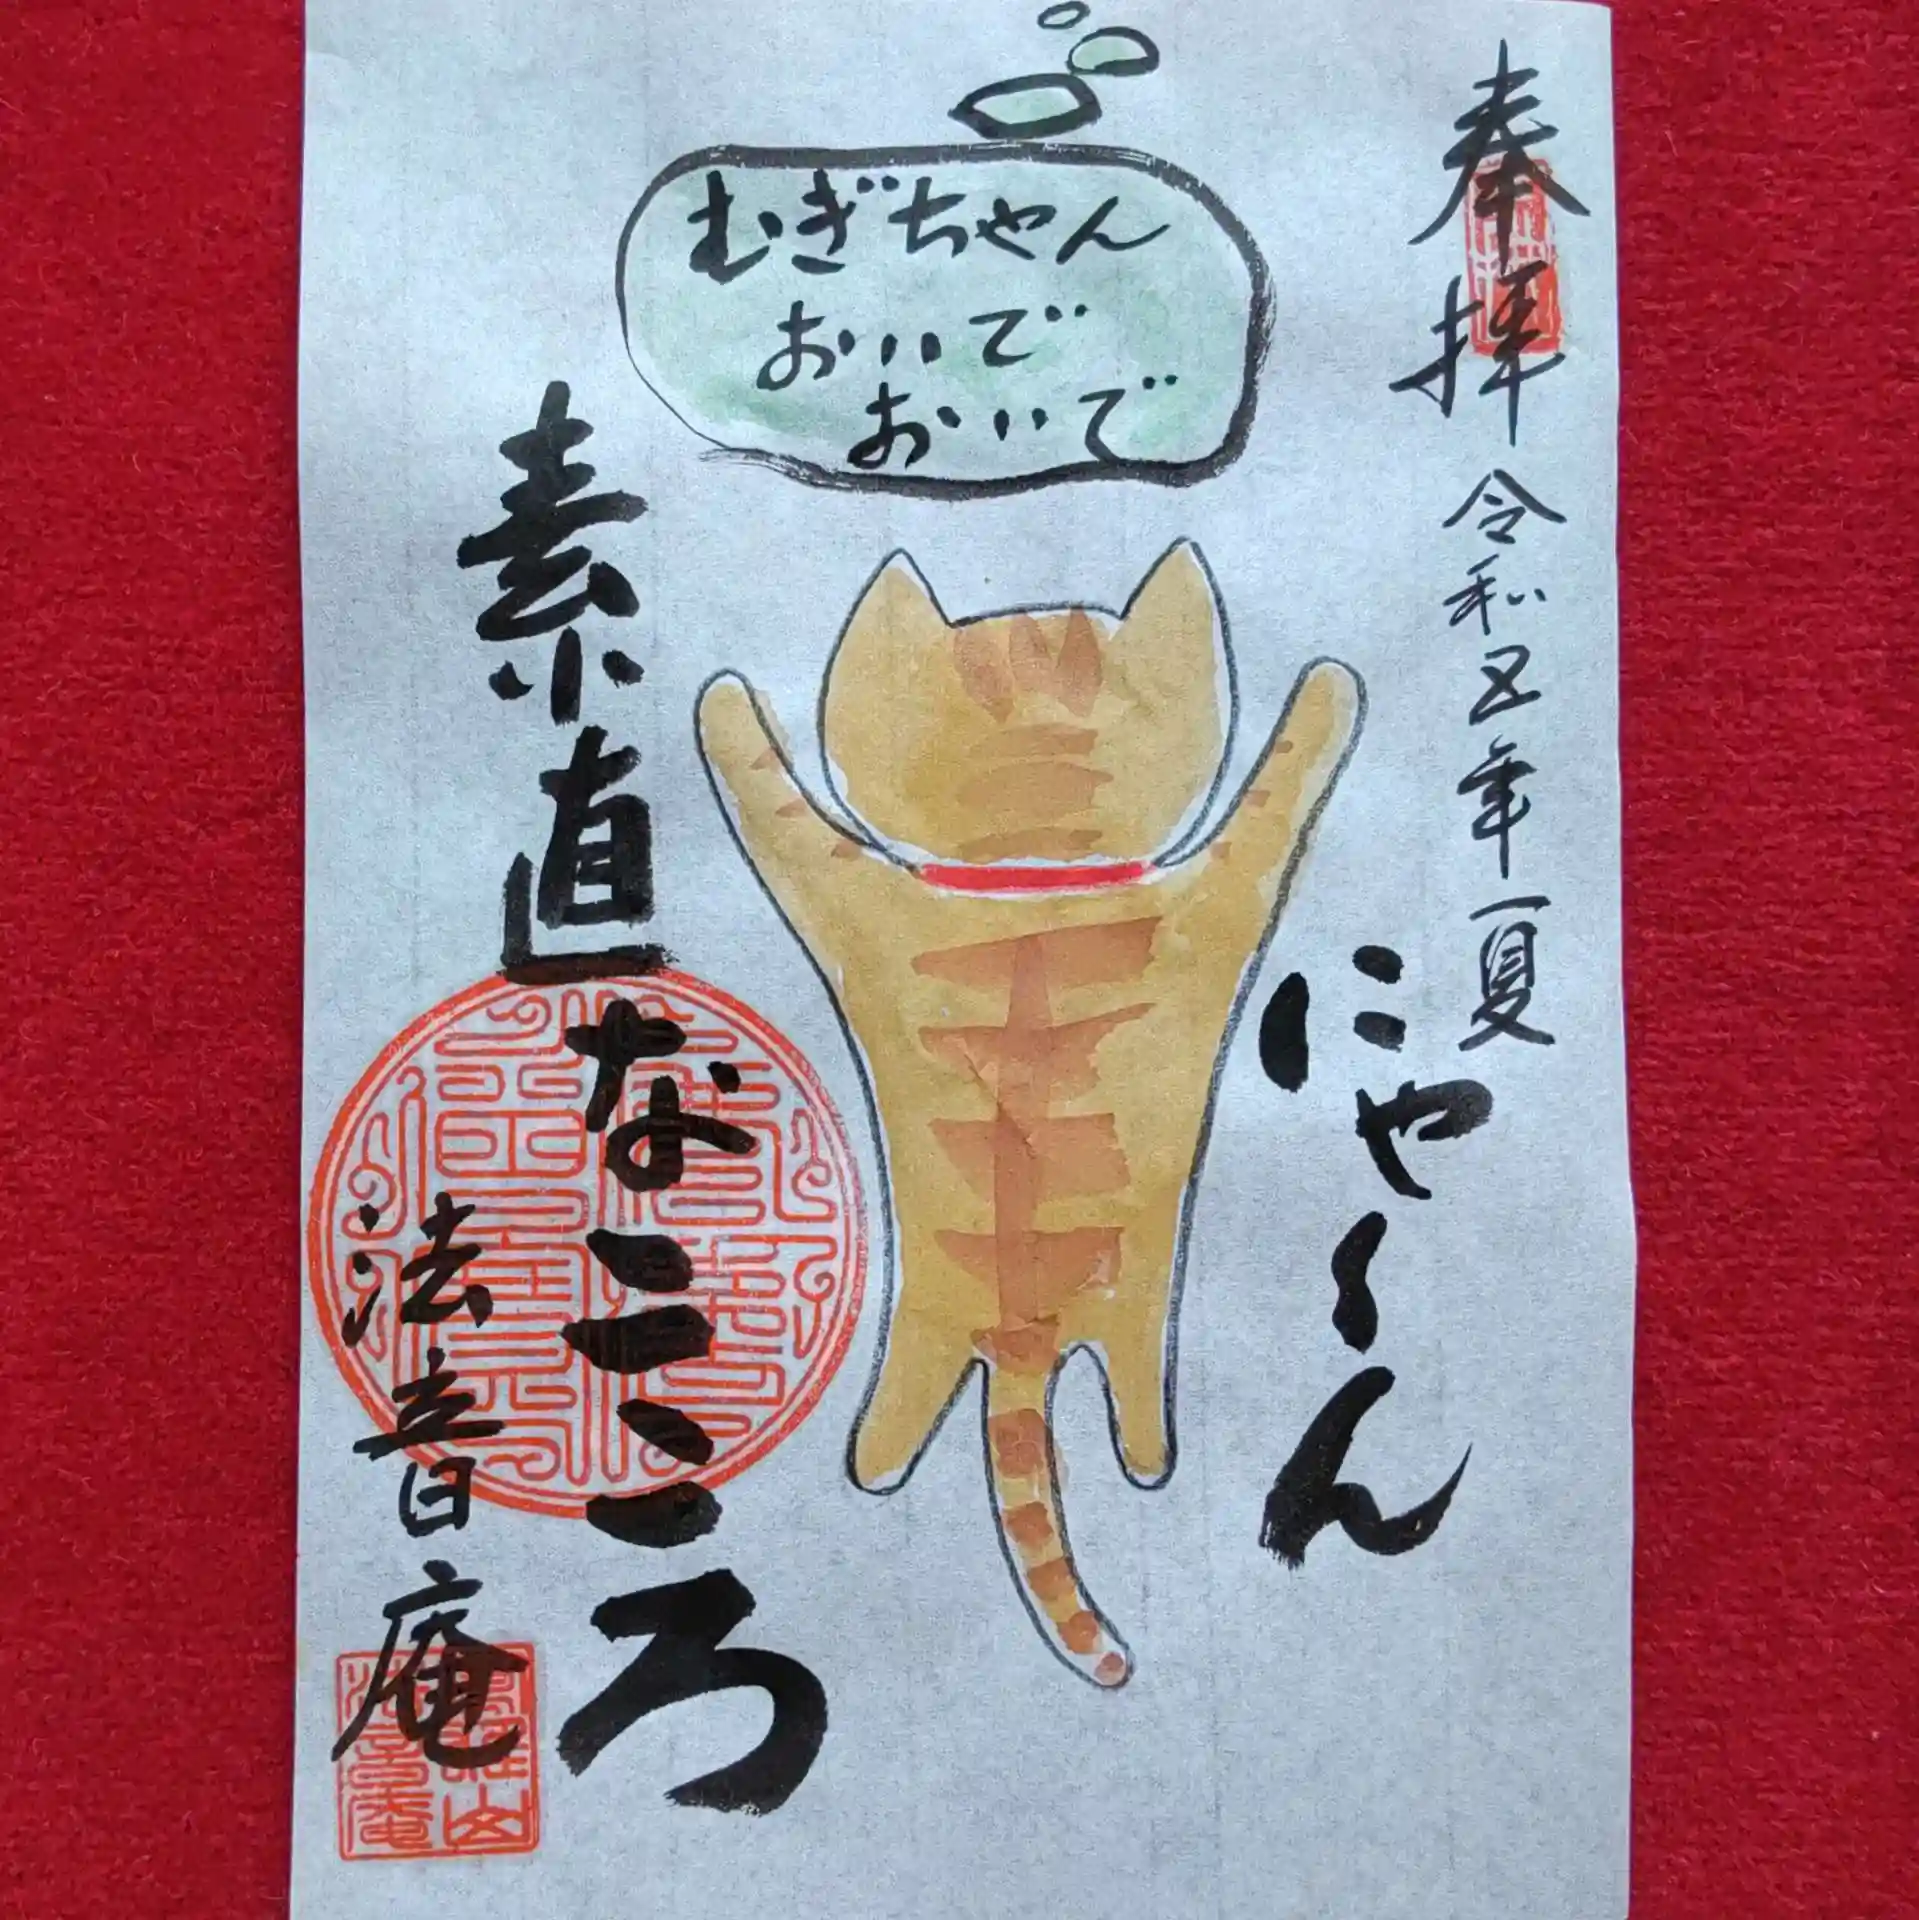 奉拝
令和五年夏
むぎちゃん
おいで
おいで
にゃ〜ん
素直なこころ
法音庵